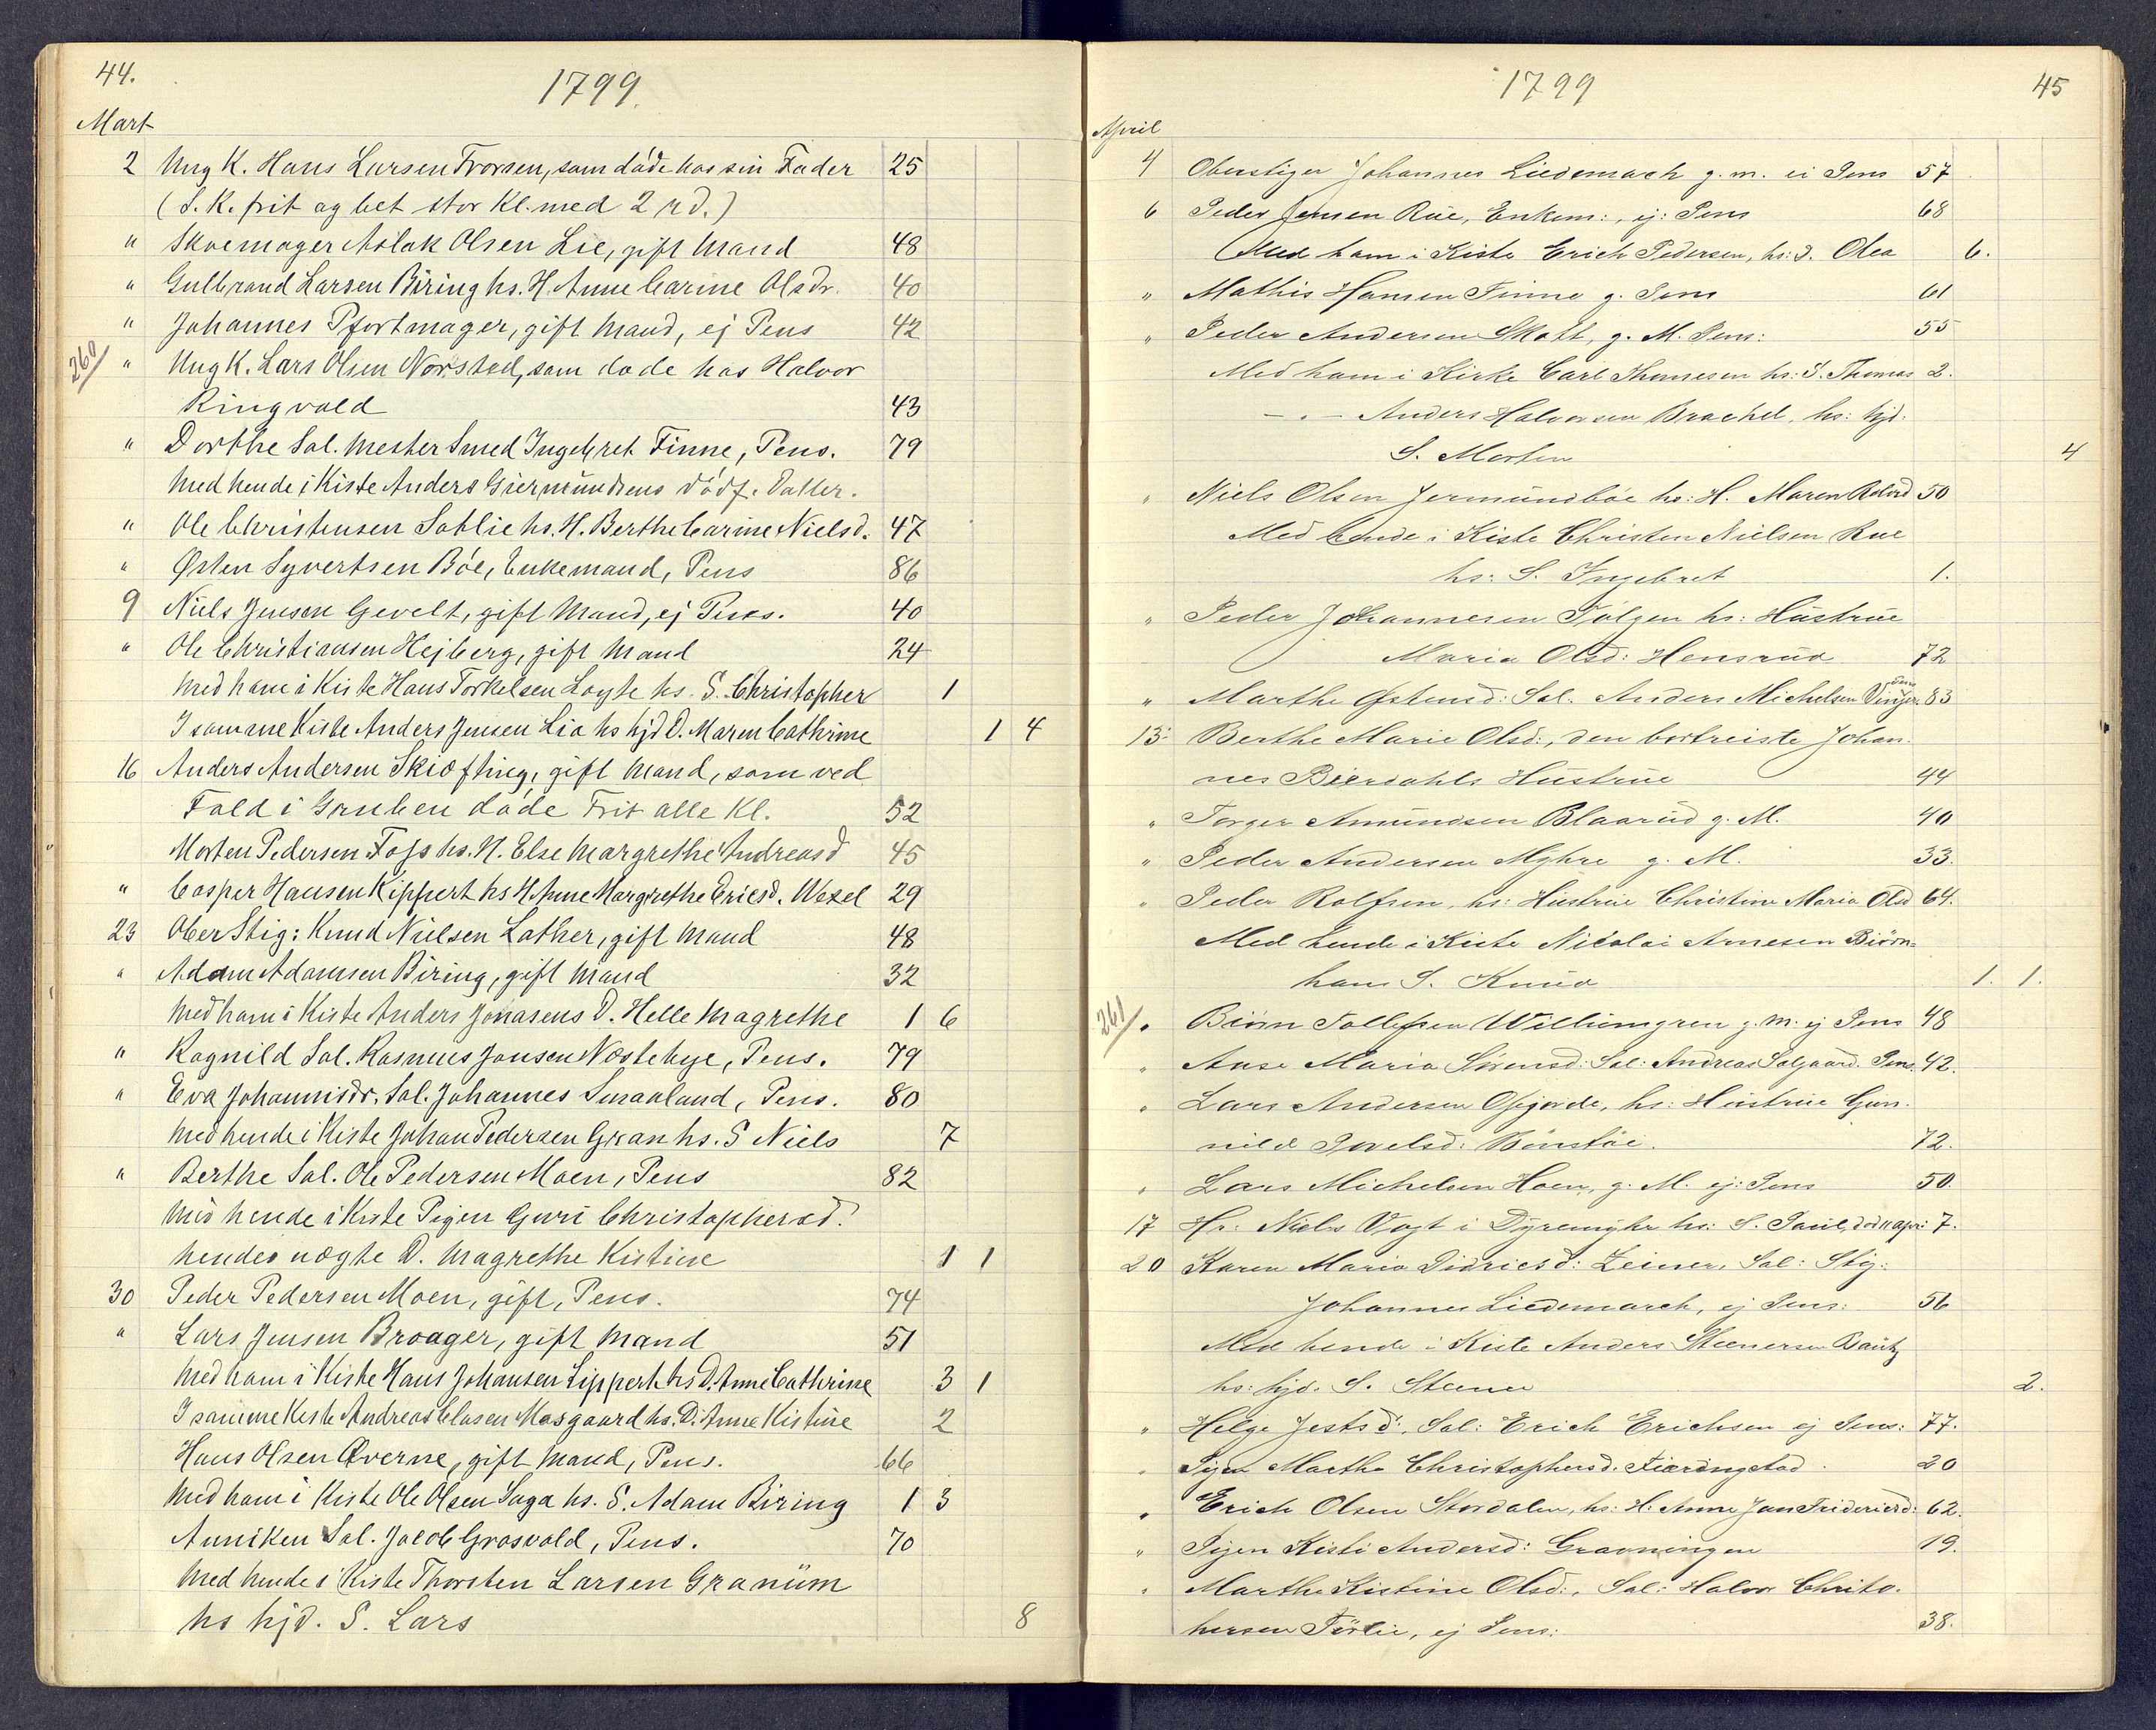 44.
1799.
Mart
2 Ung K. Hans Larsen Trorsen, som döde hos sin Fader 25
(S. K. frit og bet stor Kl. med 2 rd.)
" Skoemager Aslak Olsen Lie, gift Mand 48
" Gulbrand Larsen Biring hs. H. Anne Carine Olsdr. 40
" Johannes Pfortmager, gift Mand, ej Pens 42
260/ " Ung K. Lars Olsen Norstad, som dode hos Halvor
Ringvold 43
" Dorthe Sal. Mester Smed Ingebret Finne, Pens. 79
Med hende i Kiste Anders Giermündsens dödf. Datter.
" Ole Christensen Sohlie hs. H. Berthe Carine Nielsd. 47
" Østen Syvertsen Böe, Enkemand, Pens 86
9 Niels Jensen Gevelt, gift Mand, ej Pens. 40
" Ole Christiansen Hejberg, gift Mand 24
Med ham i Kiste Hans Torkelsen Loyte hs. S. Christopher 1
I samme Kiste Anders Jensen Lia hs hjd D. Maren Cathrine 1 4
16 Anders Andersen Skiöfting, gift Mand, som ved
Fald i Gruben döde Frit alle Kl. 52
" Morten Pedersen Foss hs. H. Else Margrethe Andreasd 45
" Casper Hansen Kippert hs H Anne Margrethe Ericsd. Wexel 29
23 Ober Stig: Knud Nielsen Lather, gift Mand 48
" Adam Adamsen Biring, gift Mand 32
Med ham i Kiste Anders Jonasens D. Helle Magrethe 1 6
" Ragnild Sal. Rasmus Jonsen Nostebye, Pens. 79
" Eva Johannisdr. Sal. Johannes Smaaland, Pens. 80
Med hende i Kiste Johan Pedersen Gran hs. S Niels 7
" Berthe Sal. Ole Pedersen Moen, Pens 82
Med hende i Kiste Pigen Guri Christophersd.
hendes uægte D. Magrethe Kistine 1 1
30 Peder Pedersen Moen, gift, Pens. 74
" Lars Jensen Broager, gift Mand 51
Med ham i Kiste Hans Johansen Lippert hs D. Anne Cathrine 3 1
I samme Kiste Andreas Clasen Mosgaard hs. D. Anne Kistine 2
Hans Olsen Qverne, gift Mand, Pens. 66
Med ham i Kiste Ole Olsen Saga hs. S. Adam Biring 1 3
Anniken Sal. Jacob Grosvold, Pens. 70
Med hende i Kiste Thorsten Larsen Granüm
hs hjd. S. Lars 8
1799
45
April
4 Oberstiger Johannes Liedemach g. m. ei Pens 57
6 Peder Jensen Rüe, Enkem:, ej: Pens 68
Med ham i Kiste Erich Pedersen, hs: D. Olea 6.
" Mathis Hansen Finne g. Pens 61
" Peder Andersen Skott, g. M. Pens: 55
Med ham i Kiste Carl Thomesen hs: S. Thomas 2.
— . — Anders Halvorsen Brachel, hs: hjd.
S. Morten 4
" Niels Olsen Jermündböe hs: H. Maren 50
Med hende i Kiste Christen Nielsen Rue
hs: S. Ingebret 1.
" Peder Johannesen Tölgen hs: Hüstrüe
Maria Olsd: Hensrüd 72
" Marthe Østensd: Sal. Anders Michelsen Vinger 83
13 Berthe Marie Olsd:, den bortreiste Johan-
nes Bierdahls Hüstrüe 44
" Torger Amündsen Blaarüd g. M. 40
" Peder Andersen Myhre g. M. 33.
" Peder Rolfsen, hs: Hüstrüe Christine Maria Olsd 64.
Med hende i Kiste Nicolai Arnesen Biörn-
hans S. Knüd 1. 1.
261/ " Biörn Tollefsen Willumgren g. m. ej Pens 48
" Anne Maria Sörensd: Sal: Andreas Solgaard. Pens. 42.
" Lars Andersen Opgjorde, hs: Hüstrüe Gun-
nild Povelsd: 72.
" Lars Michelsen Hoen, g. M. ej: Pens 50.
17 Hr: Niels Vogt i Dyremyhr hs: S. Paül, död 11 apr: 7.
20 Karen Maria Didricsd: Zeiner, Sal: Stig:
Johannes Liedemarch, ej Pens: 56
Med hende i Kiste Anders Steenersen Baütz
hs: hjd. S. Steener 2.
" Helge Jestsd: Sal: Erich Erichsen ej Pens: 77.
" Pigen Marthe Christophersd. Fieringstad 20
" Erich Olsen Stordalen, hs: H: Anne Jan Fridericsd: 62.
" Pigen Kisti Andersd: Gravningen 19.
" Marthe Kistine Olsd:, Sal: Halvor Christo-
hersen Törlie, ej Pens: 38.